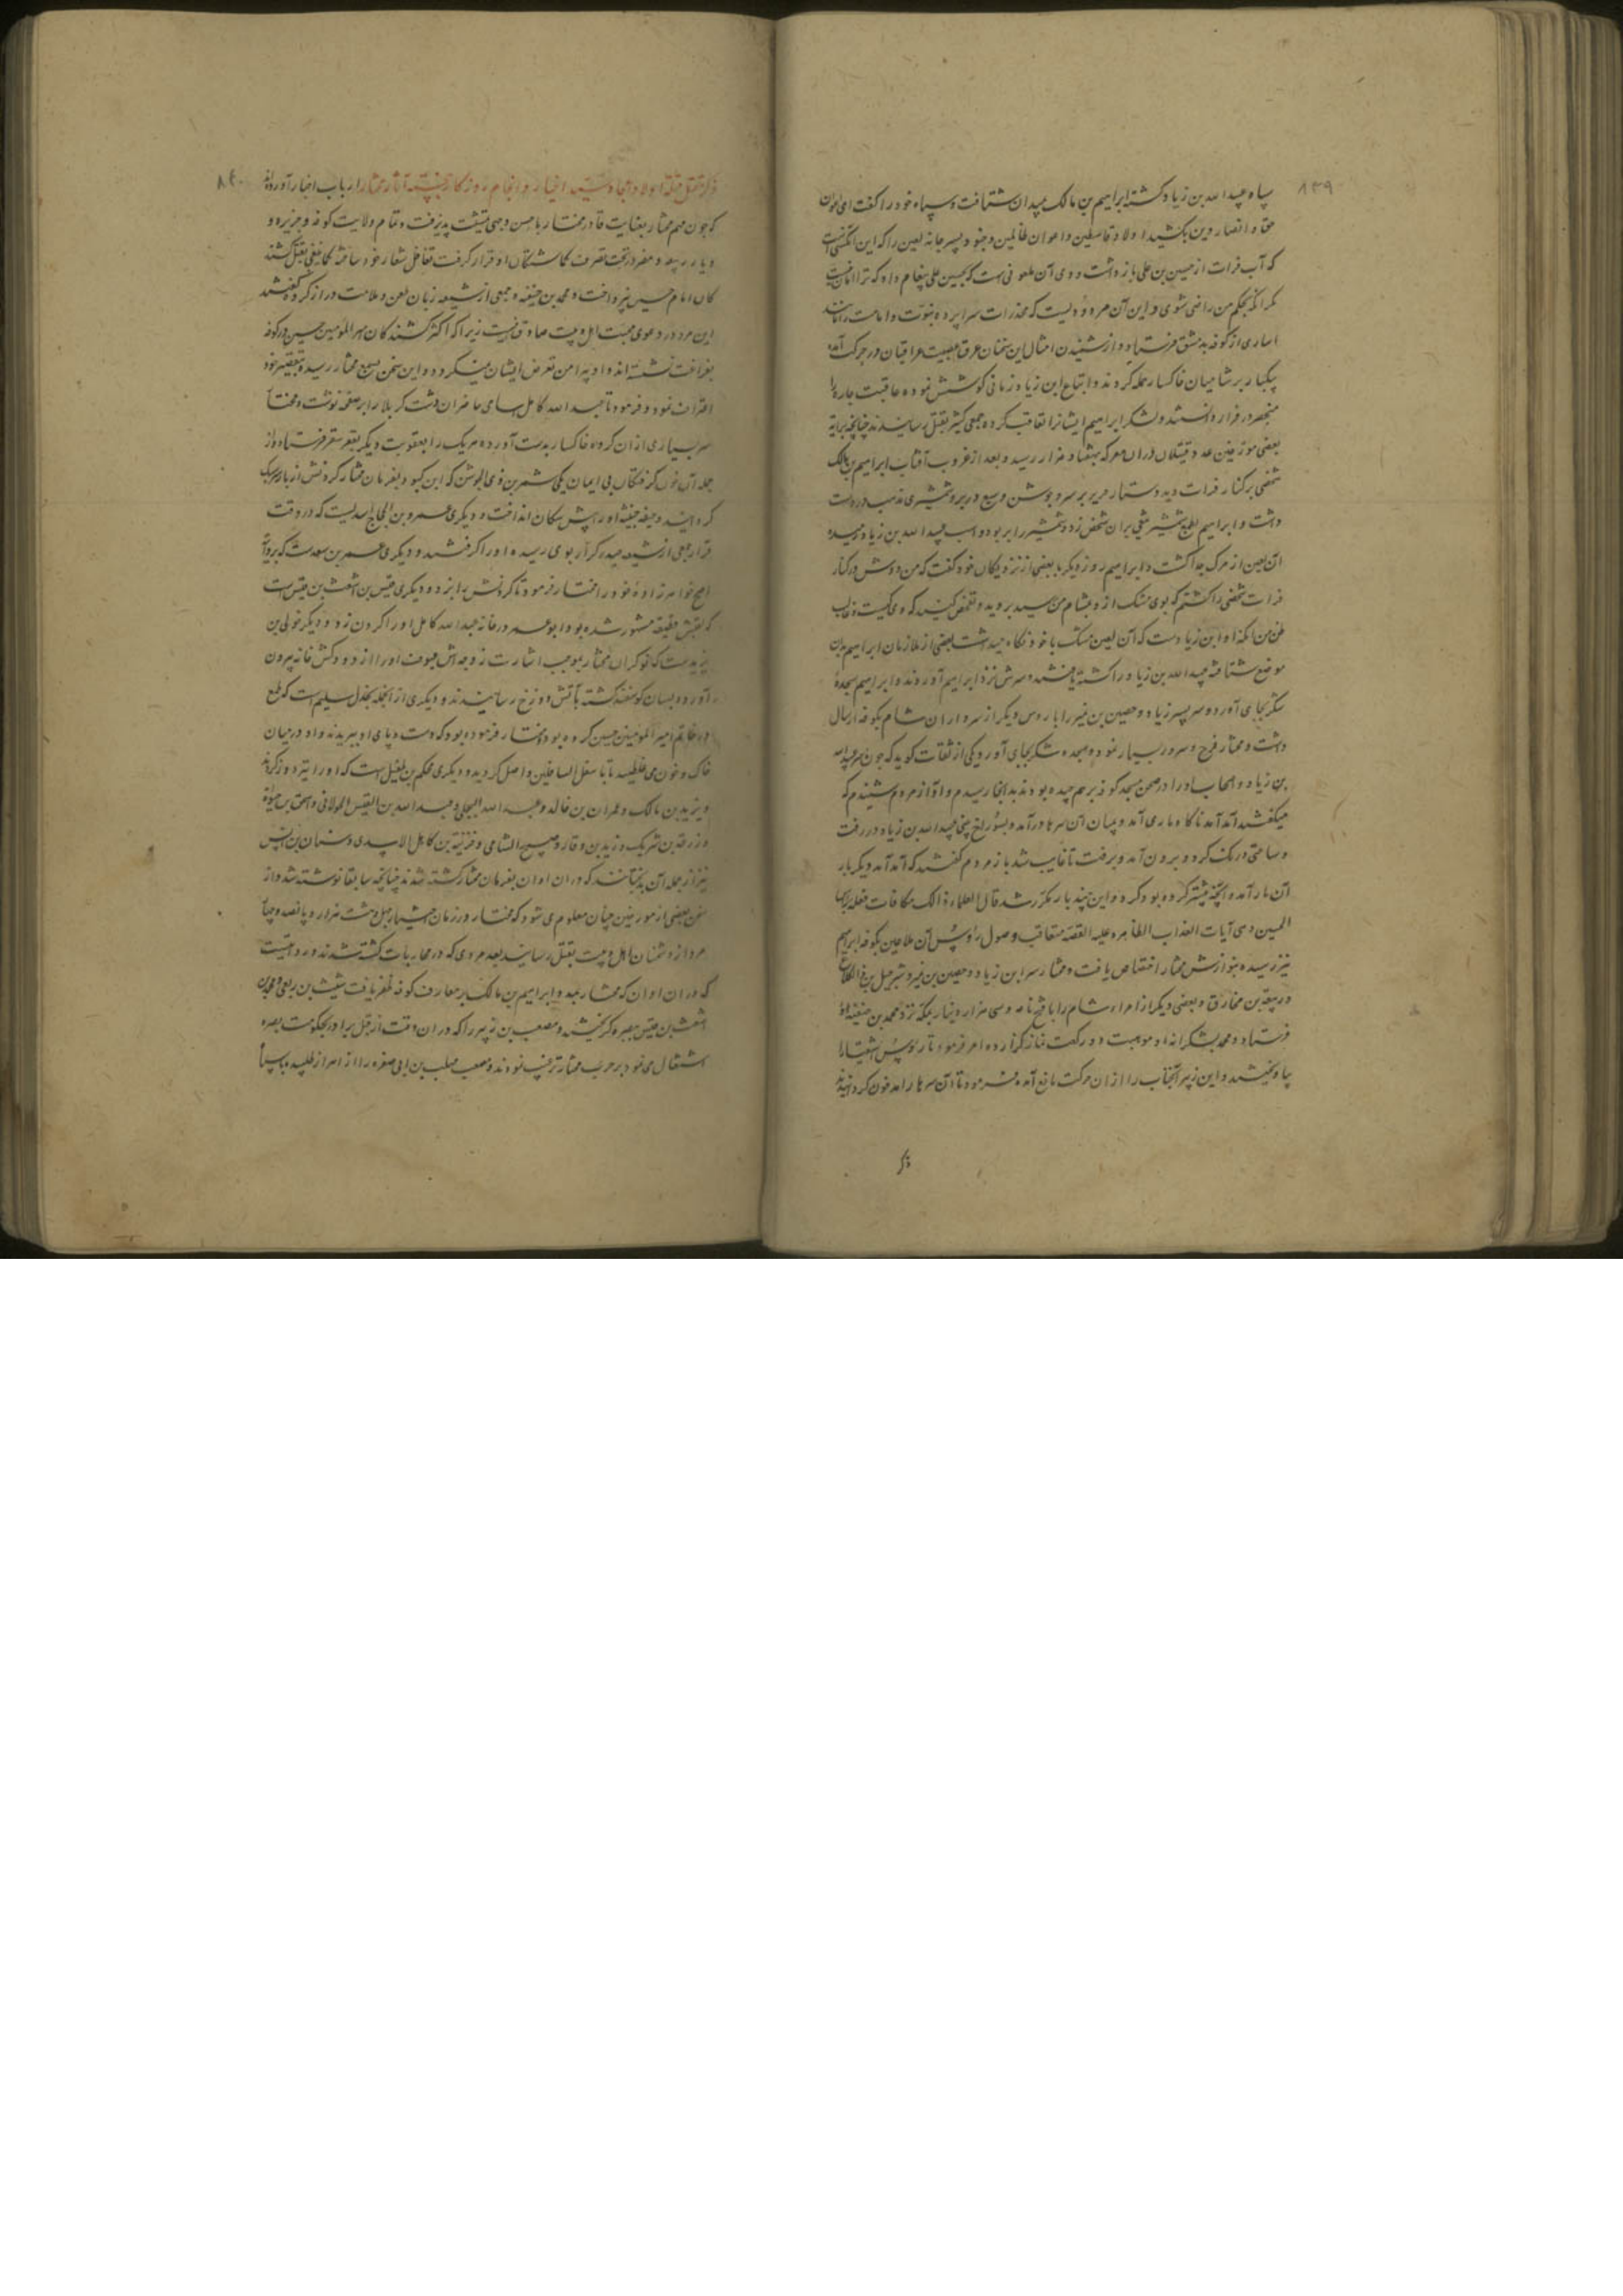 ۸۳۹
سپاه عبید الله بن زیاد کشته ابراهیم بن مالک بمیدان شتافت و سپاه خود را گفت ای اعوان
حق و انصار دین بکشید اولاد قاسطین و اعوان ظالمین و جنود پسر مرجانه لعین را که این آنکس است
که آب فرات از حسین بن علی باز داشت و وی آن ملعونی است که بحسین علی پیغام داد که ترا امان نیست
مگر آنکه بحکم من راضی شوی و این آن مردودیست که مخدرات سراپرده نبوت و امامت را مانند
اساری از کوفه بدمشق فرستاد و از شنیدن امثال این سخنان عرق عصبیت عراقیان در حرکت آمده
یکبار بر شامیان خاکسار حمله کردند و اتباع ابن زیاد زمانی کوشش نموده عاقبت چاره را
منحصر در فرار دانستند و لشکر ابراهیم ایشانرا تعاقب کرده جمعی کثیر بقتل رسانیدند چنانچه بروایة
بعضی مورخین عدد قتیلان در ان معرکه بهفتاد هزار رسید و بعد از غروب آفتاب ابراهیم بن مالک
شخصی بر کنار فرات دید دستار حریر بر سر و جوشن وسیع در بر و شمشیری مذهب در دست
داشت و ابراهیم بطمع شمشیر تیغی بران شخص زد و شمشیر را بربود و اسب عبید الله بن زیاد رمیده
آن لعین از مرکب جدا گشت و ابراهیم روز دیگر با بعضی از نزدیکان خود گفت که من دوش در کنار
فرات شخصی را کشتم که بوی مشک ازو بمشام من رسید بروید و تفحص کنید که وی کیست و غالب
ظن من آنکه او ابن زیاد است که آن لعین مشک با خود نگاه میداشت بعضی از ملازمان ابراهیم بدان
موضع شتافته عبید الله بن زیاد را کشته یافتند و سرش نزد ابراهیم آوردند و ابراهیم سجدهٔ
شکر بجای آورده سر پسر زیاد و حصین بن نمیر را با روس دیگر از سرداران شام بکوفه ارسال
داشت و مختار فرح و سرور بسیار نموده سجده شکر بجای آورد و یکی از ثقات گوید که چون سر عبید الله
بن زیاد و اصحاب او را در صحن مسجد کوفه بر هم چیده بودند بدانجا رسیدم و آواز مردم شنیدم که
میگفتند آمد آمد ناگاه ماری آمد و میان آن سرها درآمد و بسوراخ بینی عبید الله بن زیاد در رفت
و ساعتی درنک کرد و برون آمد و برفت تا غایب شد باز مردم گفتند که آمد آمد دیگر بار
آن مار آمد و آنچه پیشتر کرده بود کرد و این چند بار مکرر شد قال العلماء ذالک مکافات فعله براس
الحسین و هی آیات العذاب الظاهره علیه القصه متعاقب وصول رؤس آن ملاعین بکوفه ابراهیم
نیز رسیده بنوازش مختار اختصاص یافت و مختار سر ابن زیاد و حصین بن نمیر و شرحبیل بن ذی الکلاع
و ربیعة بن مخارق و بعضی دیگر از امراء شام را با فتح نامه و سی هزار دینار بمکه نزد محمد بن حنفیه
فرستاد و محمد بشکرانه او موهبت دو رکعت نماز گزارده امر فرمود تا رؤس اشقیا را
بیاویختند و ابن زبیر آنجناب را از ان حرکت مانع آمده فرمود تا آن سرها را مدفون گردانیدند
ذکر
۸۴۰
ذکر قتل قتلة اولاد امجاد سید اخیار و انجام روزکار خجسته آثار مختار ارباب اخبار آورده اند
که چون مهم مختار بعنایت قادر مختار باحسن وجهی تمشیت پذیرفت و تمام ولایت کوفه و جزیره و
دیار ربیعه و مضر در تحت تصرف گماشتگان او قرار گرفت تغافل شعار خود ساخته کما ینبغی بقتل کشند
گان امام حسین نپرداخت و محمد بن حنفیه و جمعی از شیعه زبان طعن و ملامت دراز کرده گفتند
این مرد در دعوی محبت اهل بیت صادق نیست زیرا که اکثر کشندکان امیر المؤمنین حسین در کوفه
بفراغت نشسته اند و او پیرامن تعرض ایشان نمیگردد و این سخن بسمع مختار رسیده بتقصیر خود
اعتراف نمود و فرمود تا عبد الله کامل اسامی حاضران دشت کربلا را بر صفحه نوشت و مختار
سر بسیاری از ان گروه خاکسار بدست آورده هر یک را بعقوبت دیگر بقعر سقر فرستاد و از
جمله آن خون گرفتگان بی ایمان یکی شمر بن ذی الجوشن که ابن کبو و بفرمان مختار گردنش از بار سر سبک
گردانیند و جیفه خبیثه او را پیش سکان انداخت و دیگری عمرو بن الحجاج اسدیست که در وقت
فرار جمعی از شیعه حیدر کرار بوی رسیده او را گرفتند و دیگری عمر بن سعد است که بروایت
اصح خواهرزادهٔ خود را مختار فرمود تا گردنش بزد و دیگری قیس بن اشعث بن قیس است
که بقیس قطیفه مشهور شده بود و ابو عمرو در خانه عبد الله کامل او را گردن زد و دیگر خولی بن
یزیدست که نوکران مختار بموجب اشارت زوجه اش عیوف او را از دودکش خانه بیرون
آورده بسان گوسفند کشته بآتش دوزخ رسانیدند و دیگری از انجمله بجدل سلیم است که طمع
در خاتم امیر المؤمنین حسین کرده بود و مختار فرموده بود که دست و پای او ببریدند و او در میان
خاک و خون می غلطید تا باسفل السافلین واصل گردید و دیگری محکم بن طفیل است که او را تیر دوز کردند
و یزید بن مالک و عمران بن خالد و عبد الله البجلی و عبد الله بن القیس الخولانی و اسحق بن حیوة
و زرعة بن شریک و زید بن وقاد و صبیح الشامی و خزیمة بن کاهل الاسدی و سنان بن انس
نیز از جمله آن بدبختانند که در ان اوان بفرمان مختار کشته شدند چنانچه سابقا نوشته شد و از
سخن بعضی از مورخین چنان معلوم می شود که مختار در زمان اختیار چهل و هشت هزار و پانصد و پنجاه
مرد از دشمنان اهل بیت بقتل رسانید بعد مردمی که در محاربات کشته شدند در روایتست
که در ان اوان که مختار بمدد ابراهیم بن مالک بر معارف کوفه ظفر یافت شبث بن ربعی و محمد بن
اشعث بن قیس ببصره گریختند و مصعب بن زبیر را که در ان وقت از قبل برادر بحکومت بصره
اشتغال می نمود بر حرب مختار ترغیب نمودند و مصعب مهلب بن ابی صفره را از اهواز طلبیده با سپاه